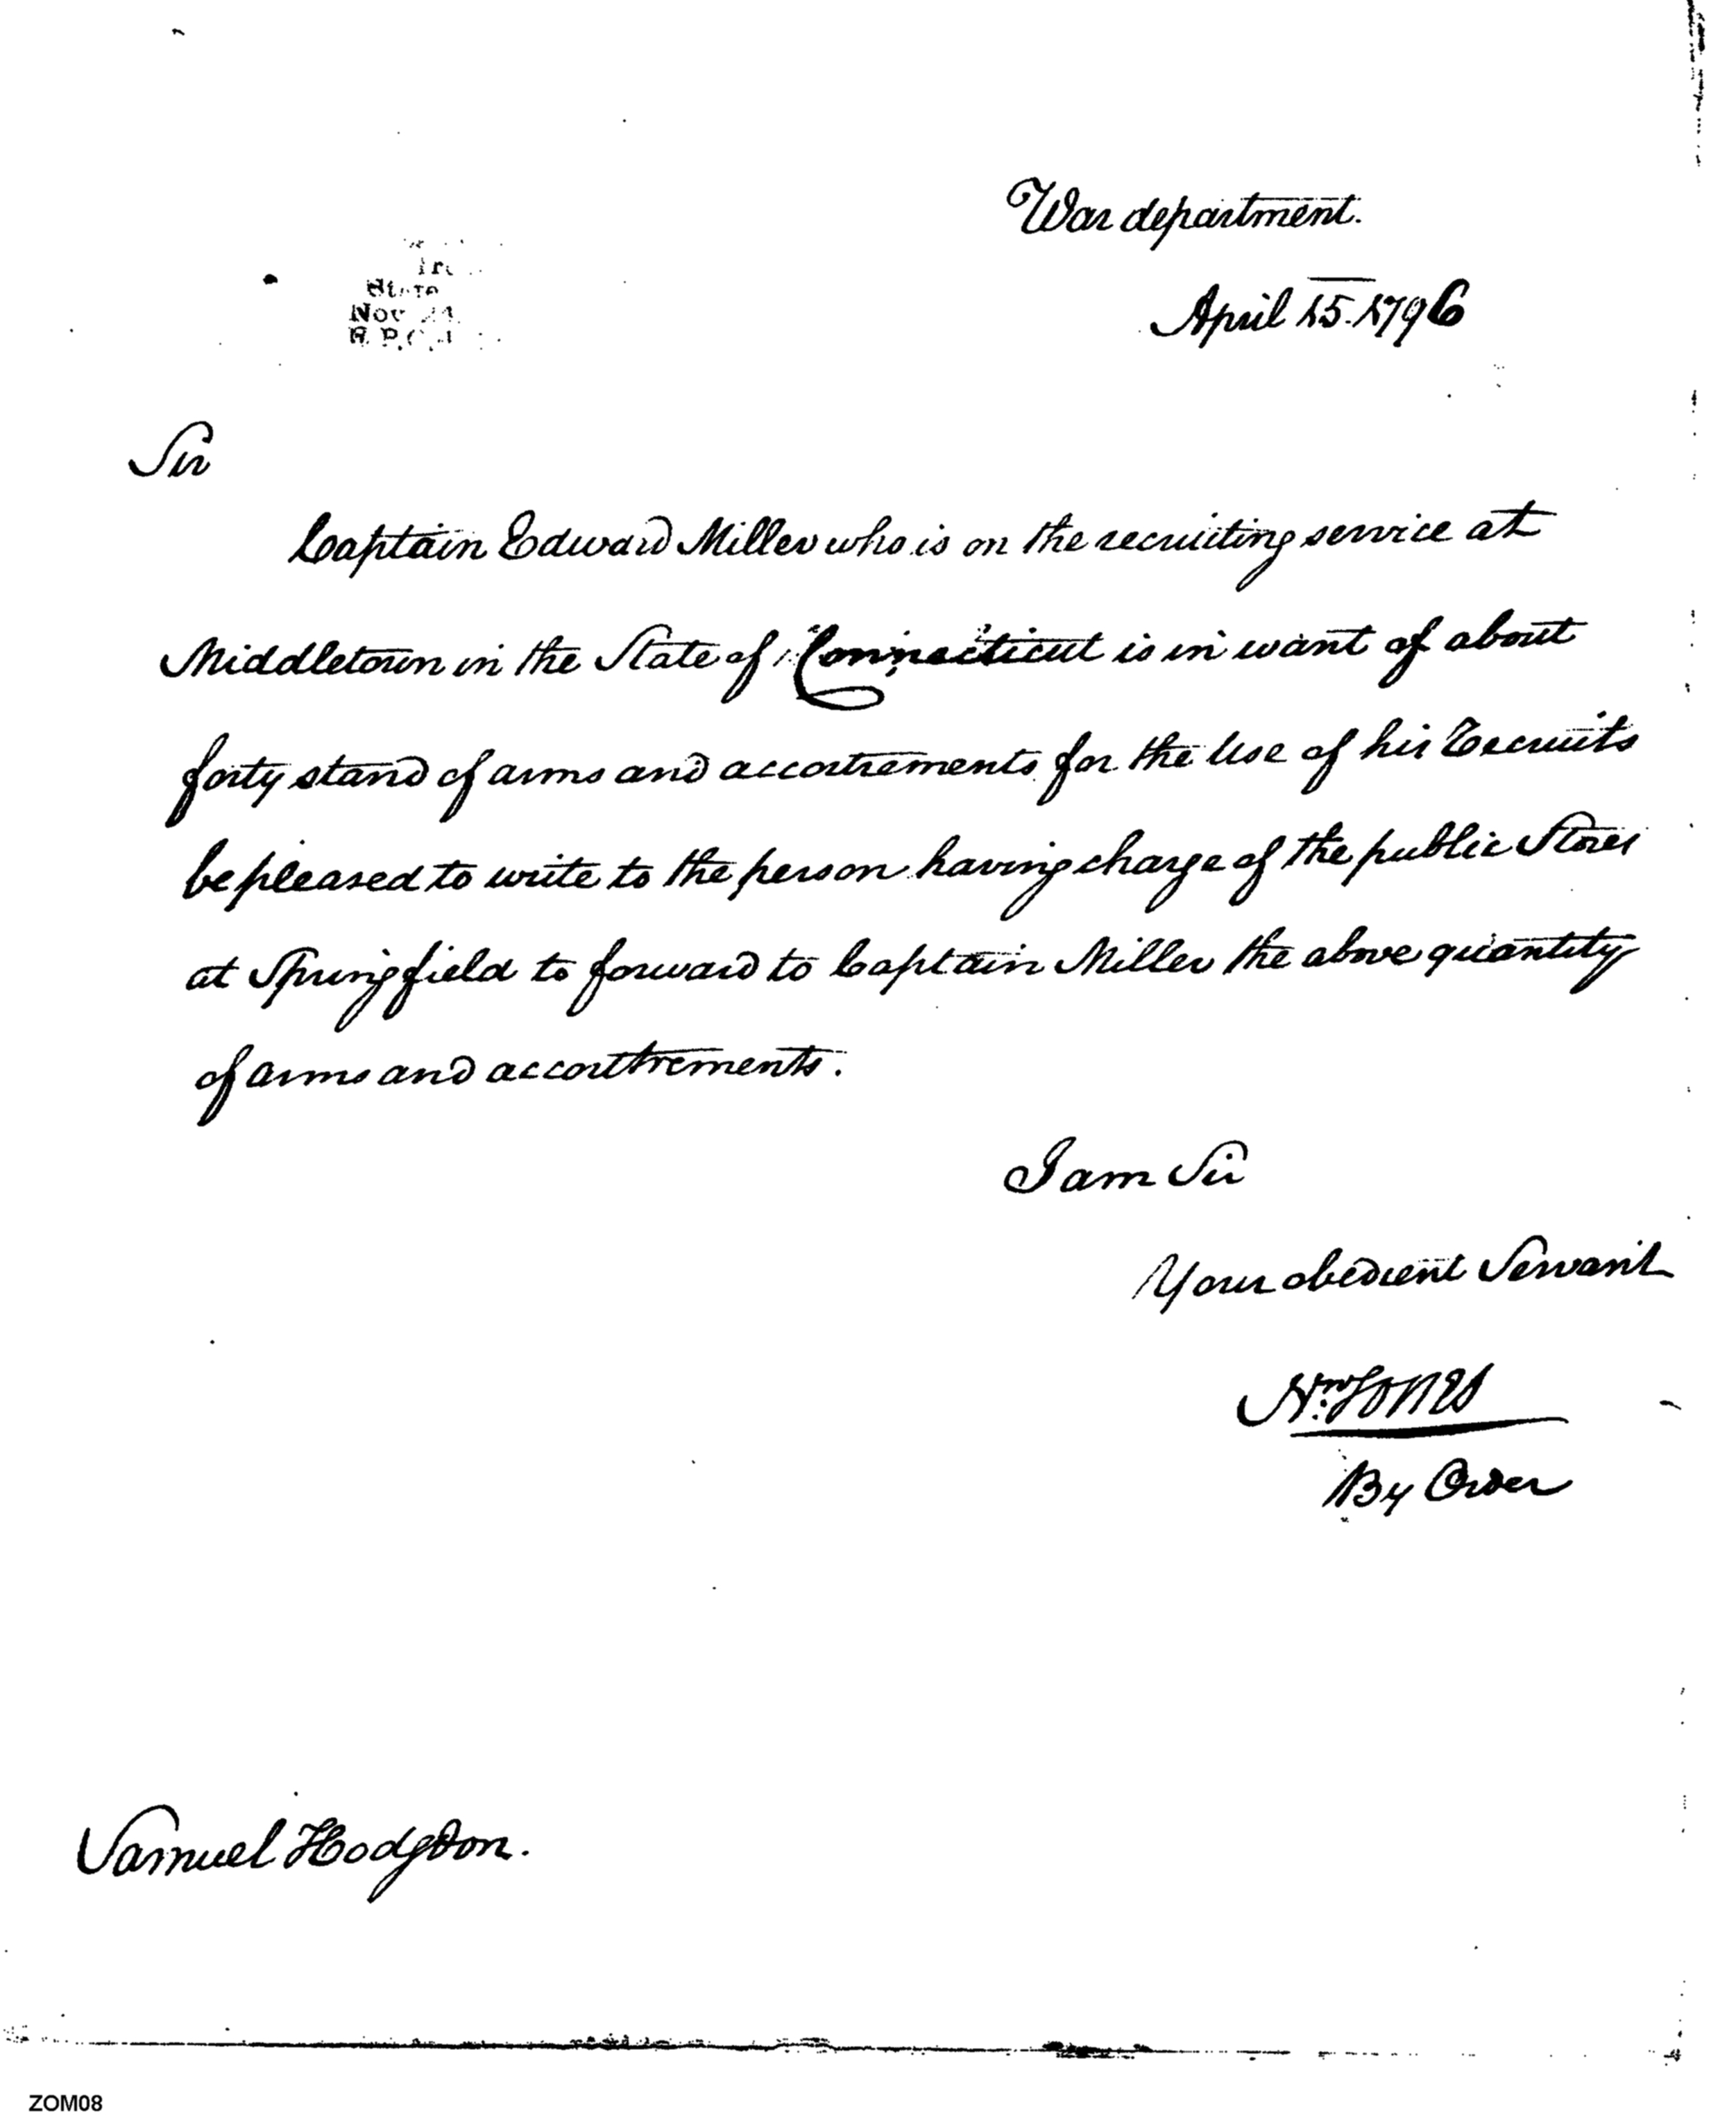 War department.
April 15. 1796
Nov 24
Sir
Captain Edward Miller who is on the recruiting service at
Middletown in the State of Connecticut is in want of about
forty stand of arms and accoutrements for the Use of his Recruits
be pleased to write to the person having charge of the public Stores
at Springfield to forward to Captain Miller the above quantity
of arms and accoutrements.
I am Sir
Your obedient Servant
Nn. Jones
By Order
Samuel Hodgdon.
ZOM08